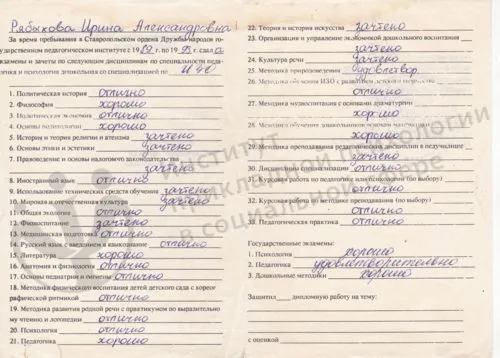 Рябыкова Ирина Александровна
За время пребывания в Ставропольском ордена Дружбы народов
государственном педагогическом институте с 19 г. по 19 г. сдала
экзамены и зачеты по следующим дисциплинам по специальности педа-
гогика и психология дошкольная со специализацией по ИЗО
1. Политическая история отлично
2. Философия хорошо
3. Политическая экономия отлично
4. Основы хорошо
5. История и теория религии и атеизма зачтено
6. Основы этики и эстетики зачтено
7. Правоведение и основы налогового законодательства
зачтено
8. Иностранный язык отлично
9. Использование технических средств обучения зачтено
10. Мировая и отечественная культура зачтено
11. Общая экология отлично
12. зачтено
13. Медицинская подготовка отлично
14. Русский язык с введением в языкознание отлично
15. Литература хорошо
16. Анатомия и физиология отлично
17. Основы педиатрии и гигиены отлично
18. Методика физического воспитания детей детского сада с хорео-
графической ритмикой отлично
19. Методика развития родной речи с практикумом по выразительно-
му чтению и логопедии отлично
20. Психология отлично
21. Педагогика хорошо
22. Теория и история искусства зачтено
23. Организация и управление экономикой дошкольного воспитания
зачтено
24. Культура речи зачтено
25. Методика природоведения удовлетвор.
26. Методика обучения ИЗО с
отлично
27. Методика музвоспитания с основами драматургии
хорошо
28. Методика обучения дошкольников основам математики
хорошо
29. Методика преподавания педагогических дисциплин в педучилище
зачтено
30. Дисциплины специализации отлично
31. Курсовая работа по педагогике или психологии (по выбору)
отлично
32. Курсовая работа по методике преподавания (по выбору)
отлично
33. Педагогическая практика отлично
Государственные экзамены:
1. Психология хорошо
2. Педагогика удовлетворительно
3. Дошкольные методики хорошо
Защитил дипломную работу на тему:
с оценкой
институт
прикладной психологии
в социальной сфере